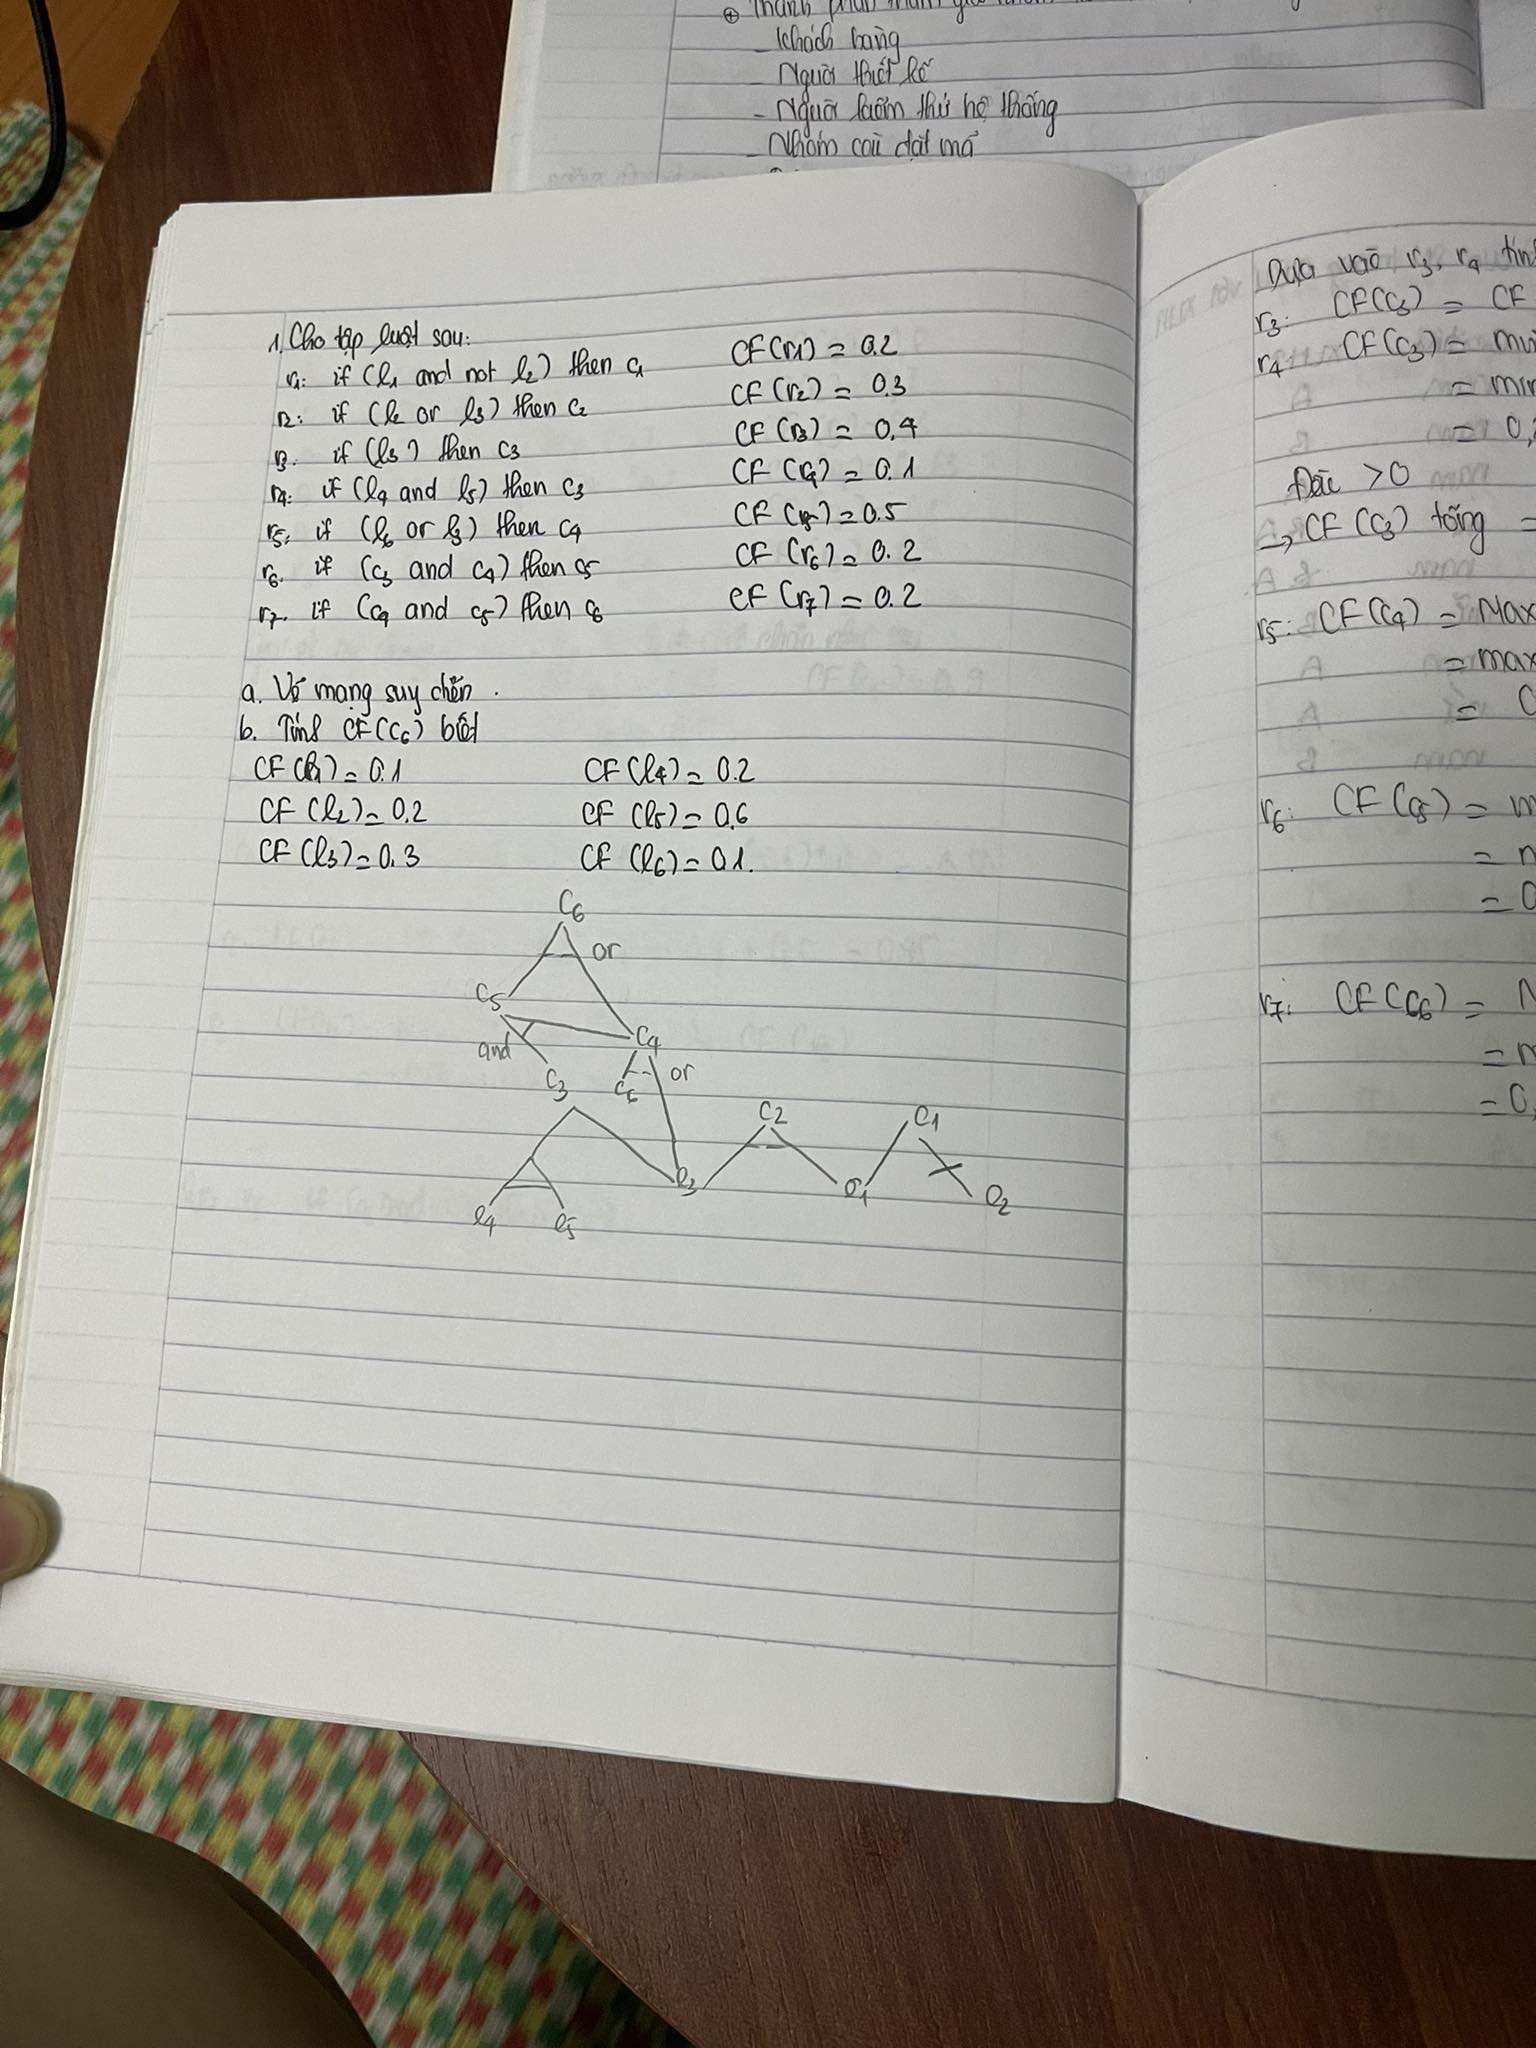 Khách hàng
- Người thiết kế
- Người kiểm thử hệ thống
- Nhóm cài đặt mã
1. Cho tập luật sau:
r1: if (l1 and not l2) then c1 CF(r1) = 0.2
r2: if (l2 or l3) then c2 CF(r2) = 0.3
r3. if (l3) then c3 CF(r3) = 0,4
r4: if (l4 and l5) then c3 CF(r4) = 0.1
r5: if (l6 or l3) then c4 CF(r5) = 0.5
r6. if (c3 and c4) then c5 CF(r6) = 0.2
r7. if (c4 and c5) then c6 CF(r7) = 0.2
a. Vẽ mạng suy diễn.
b. Tính CF(C6) biết
CF(l1) = 0.1 CF(l4) = 0.2
CF(l2) = 0.2 CF(l5) = 0,6
CF(l3) = 0,3 CF(l6) = 0.1.
C6
or
C5
C4
and
C3
C6
or
C2
C1
l3
l2
l4
l5
Dựa vào r3, r4
r3: CF(C3) = CF
r4: CF(C3) =
=
= 0,
Đều >0
→ CF(C3) tổng =
r5: CF(C4) = Max
= max
=
r6: CF(C5) =
=
= 0
r7: CF(C6) =
=
= 0,